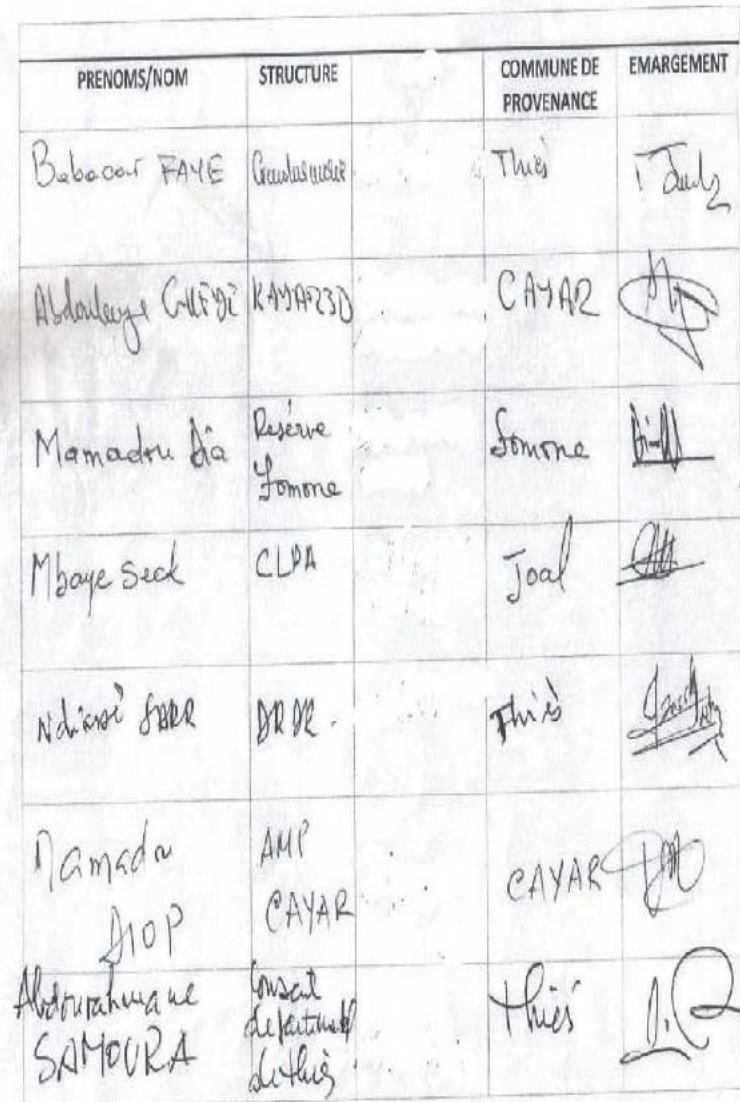 PRENOMS/NOM STRUCTURE COMMUNE DE PROVENANCE EMARGEMENT
Babacar FAYE Thiès
Abdoulaye CAYAR
Mamadou Dia Reserve Somone Somone
Mbaye Seck CLPA Joal
SARR DRDR. Thiès
Mamadou DIOP AMP CAYAR CAYAR
Abdourahmane SAMOURA Conseil departmental de thiès thiès